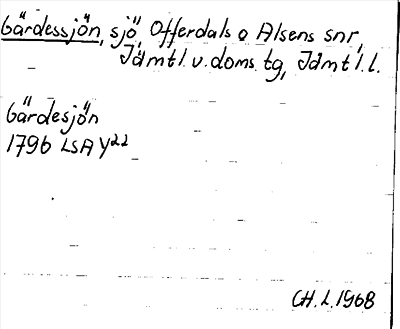 Gärdessjön, sjö, Offerdals o Alsens snr,
Jämtl. v. doms. tg, Jämtl. l.
Gärdesjön
1796 LSA Y22
CH. L. 1968